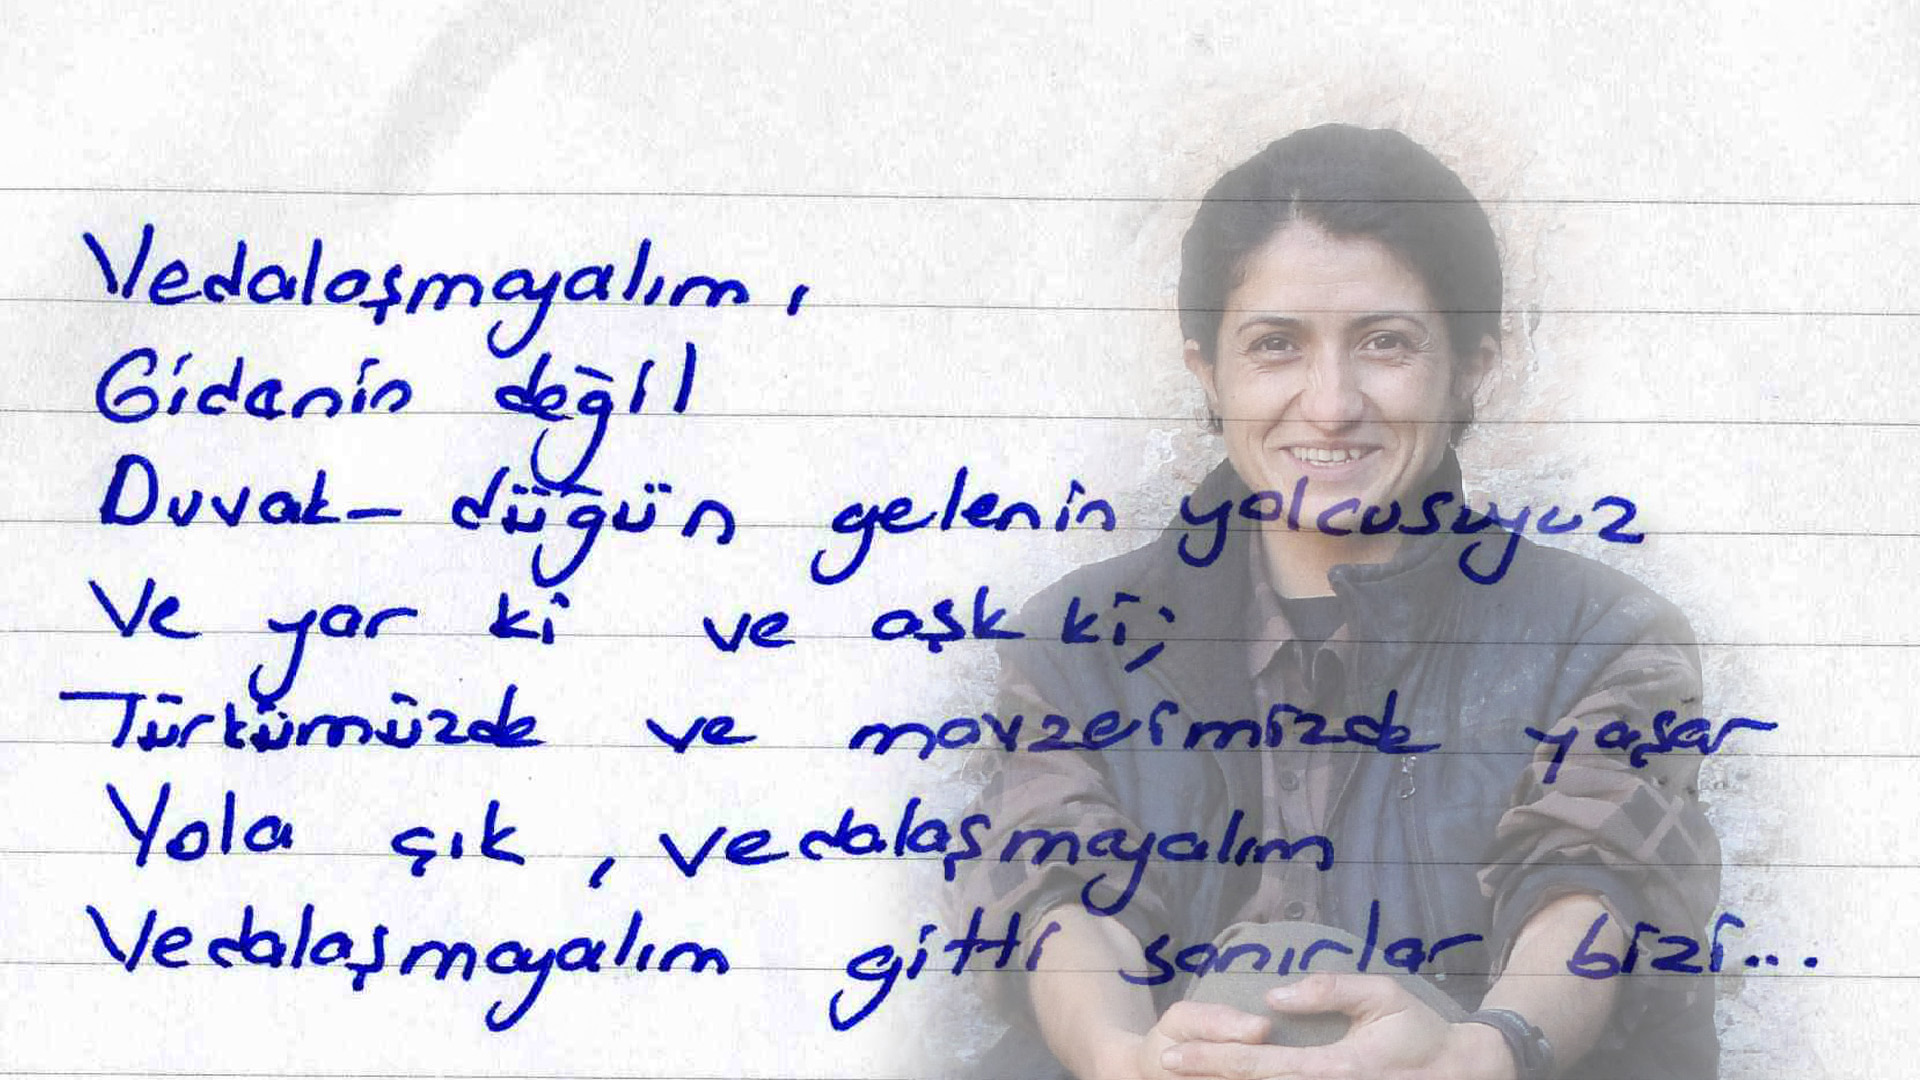 Vedalaşmayalım,
Gidenin değil
Duvak- düğün gelenin yolcusuyuz
Ve yar ki ve aşk ki;
Türkümüzde ve mavzerimizde yaşar
Yola çık, vedalaşmayalım
Vedalaşmayalım gitti sanırlar bizi...